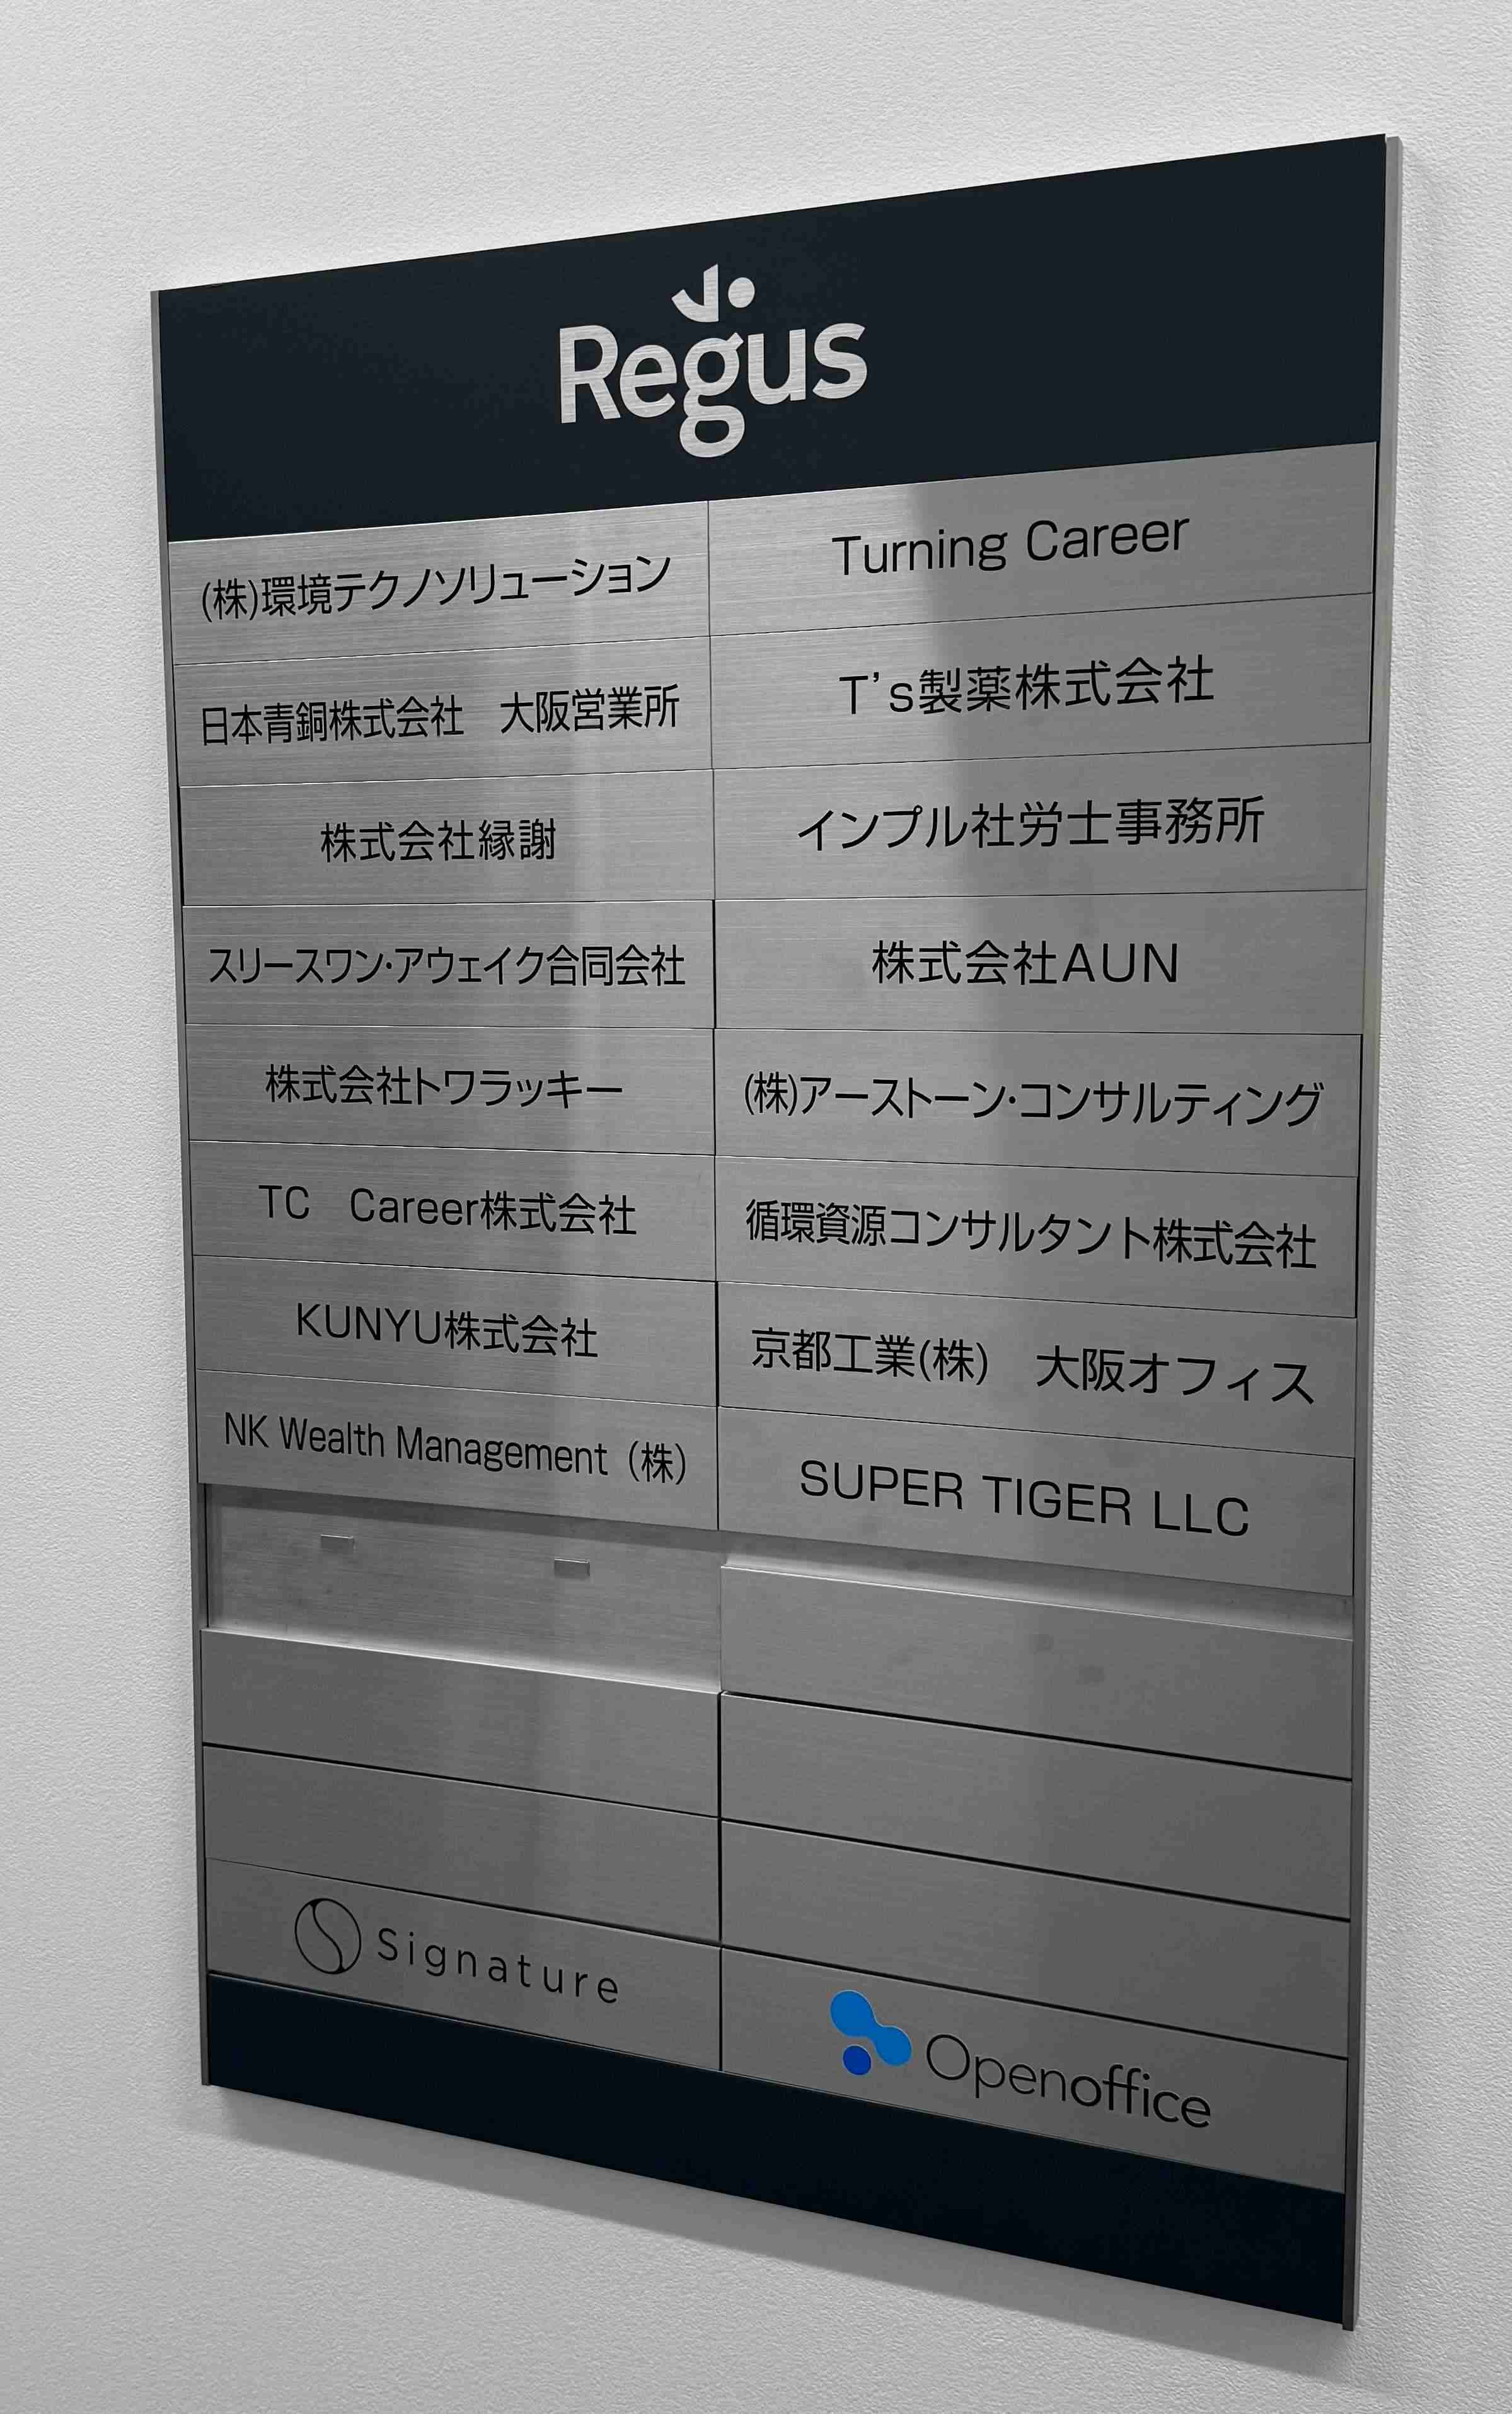 Regus
(株)環境テクノソリューション
Turning Career
日本青銅株式会社　大阪営業所
T's製薬株式会社
株式会社縁謝
インプル社労士事務所
スリースワン・アウェイク合同会社
株式会社AUN
株式会社トワラッキー
(株)アーストーン・コンサルティング
TC　Career株式会社
循環資源コンサルタント株式会社
KUNYU株式会社
京都工業(株)　大阪オフィス
NK Wealth Management（株）
SUPER TIGER LLC
Signature
Openoffice